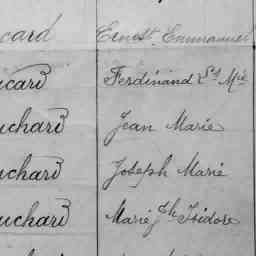 card Ernest Emmanuel
icard Ferdinand St Mie
uchard Jean Marie
uchard Joseph Marie
uchard Marie Jph Isidore